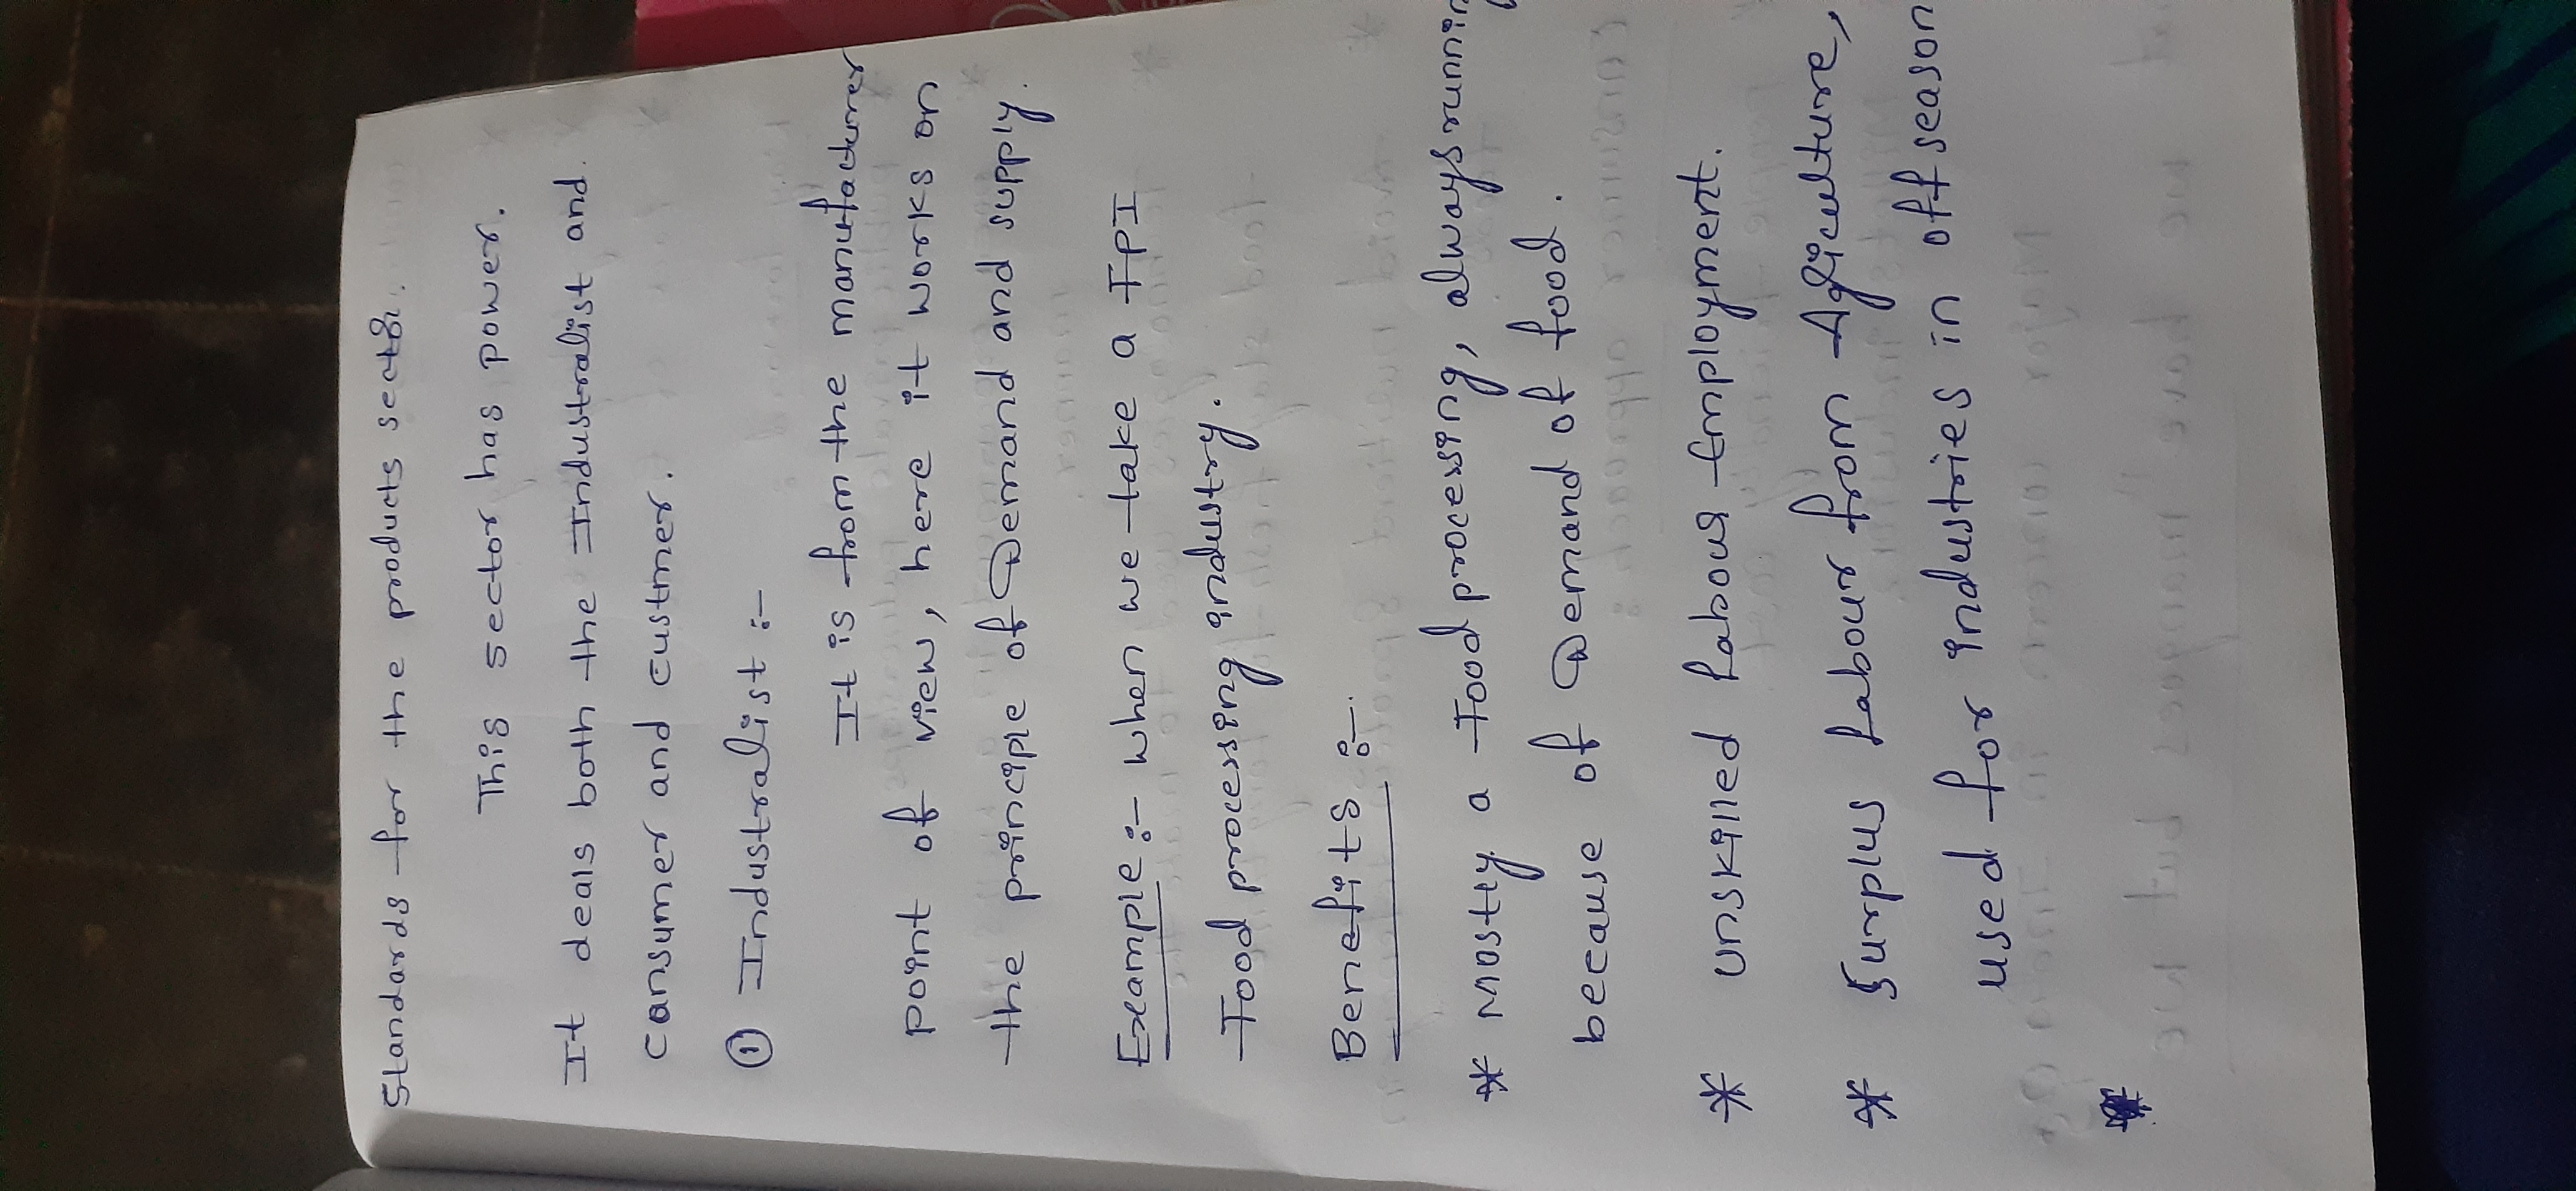 Standards for the products sector.
This sector has power.
It deals both the Industralist and
consumer and custmer.
① Industralist :-
It is from the manufacturer
point of view, here it works on
the principle of Demand and supply.
Example :- when we take a FPI
Food processing industry.
Benefits :-
* mostly a Food processing, always running
because of Demand of food.
* unskilled Labour Employment.
* Surplus Labour from Agriculture,
used for industries in offseason
*